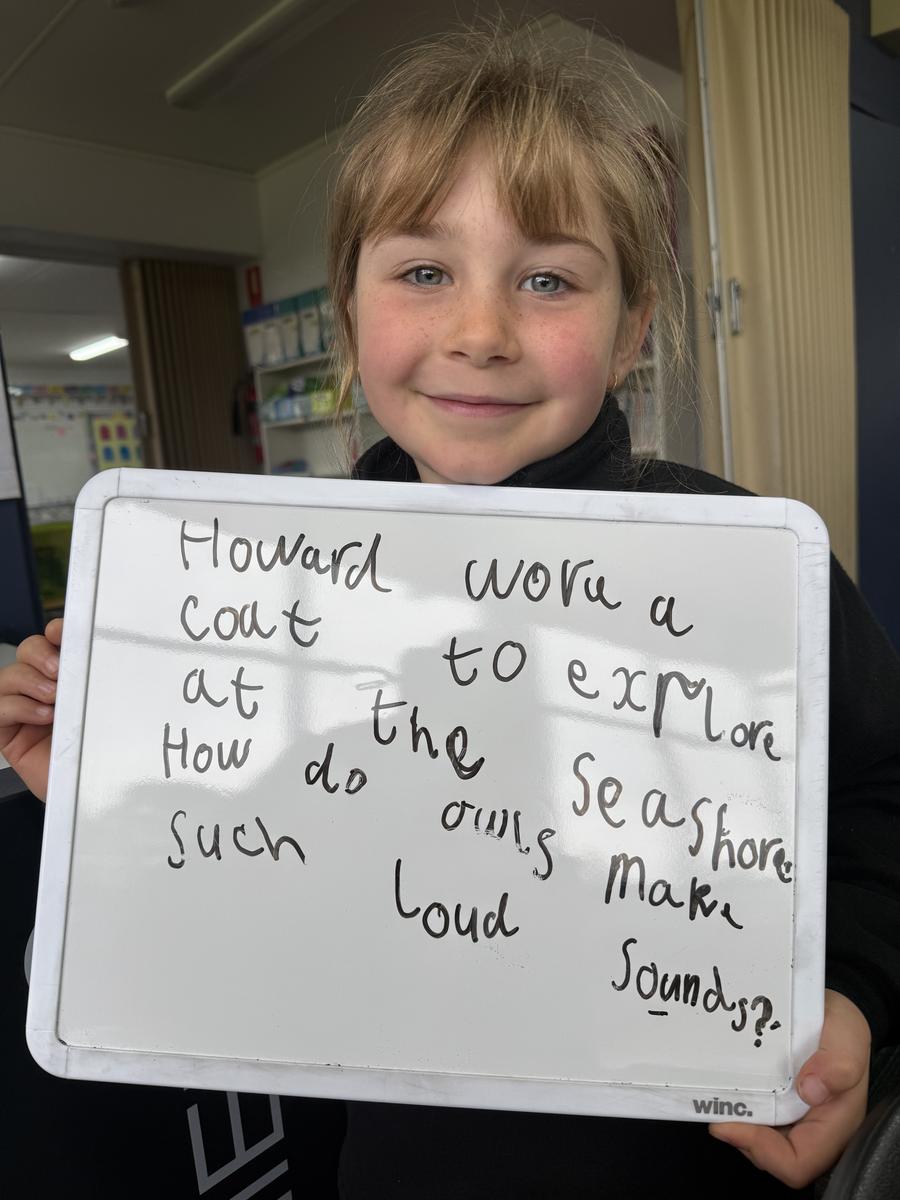 Howard wore a
coat to explore
at the seashore
How do owls make
such loud sounds?
winc.